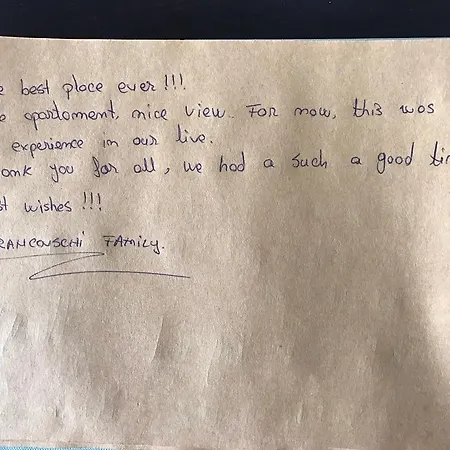 best place ever!!!
apartoment, nice view.. For now, this was
experience in our live.
you for all, we had a such a good
wishes!!!
FAMILY.